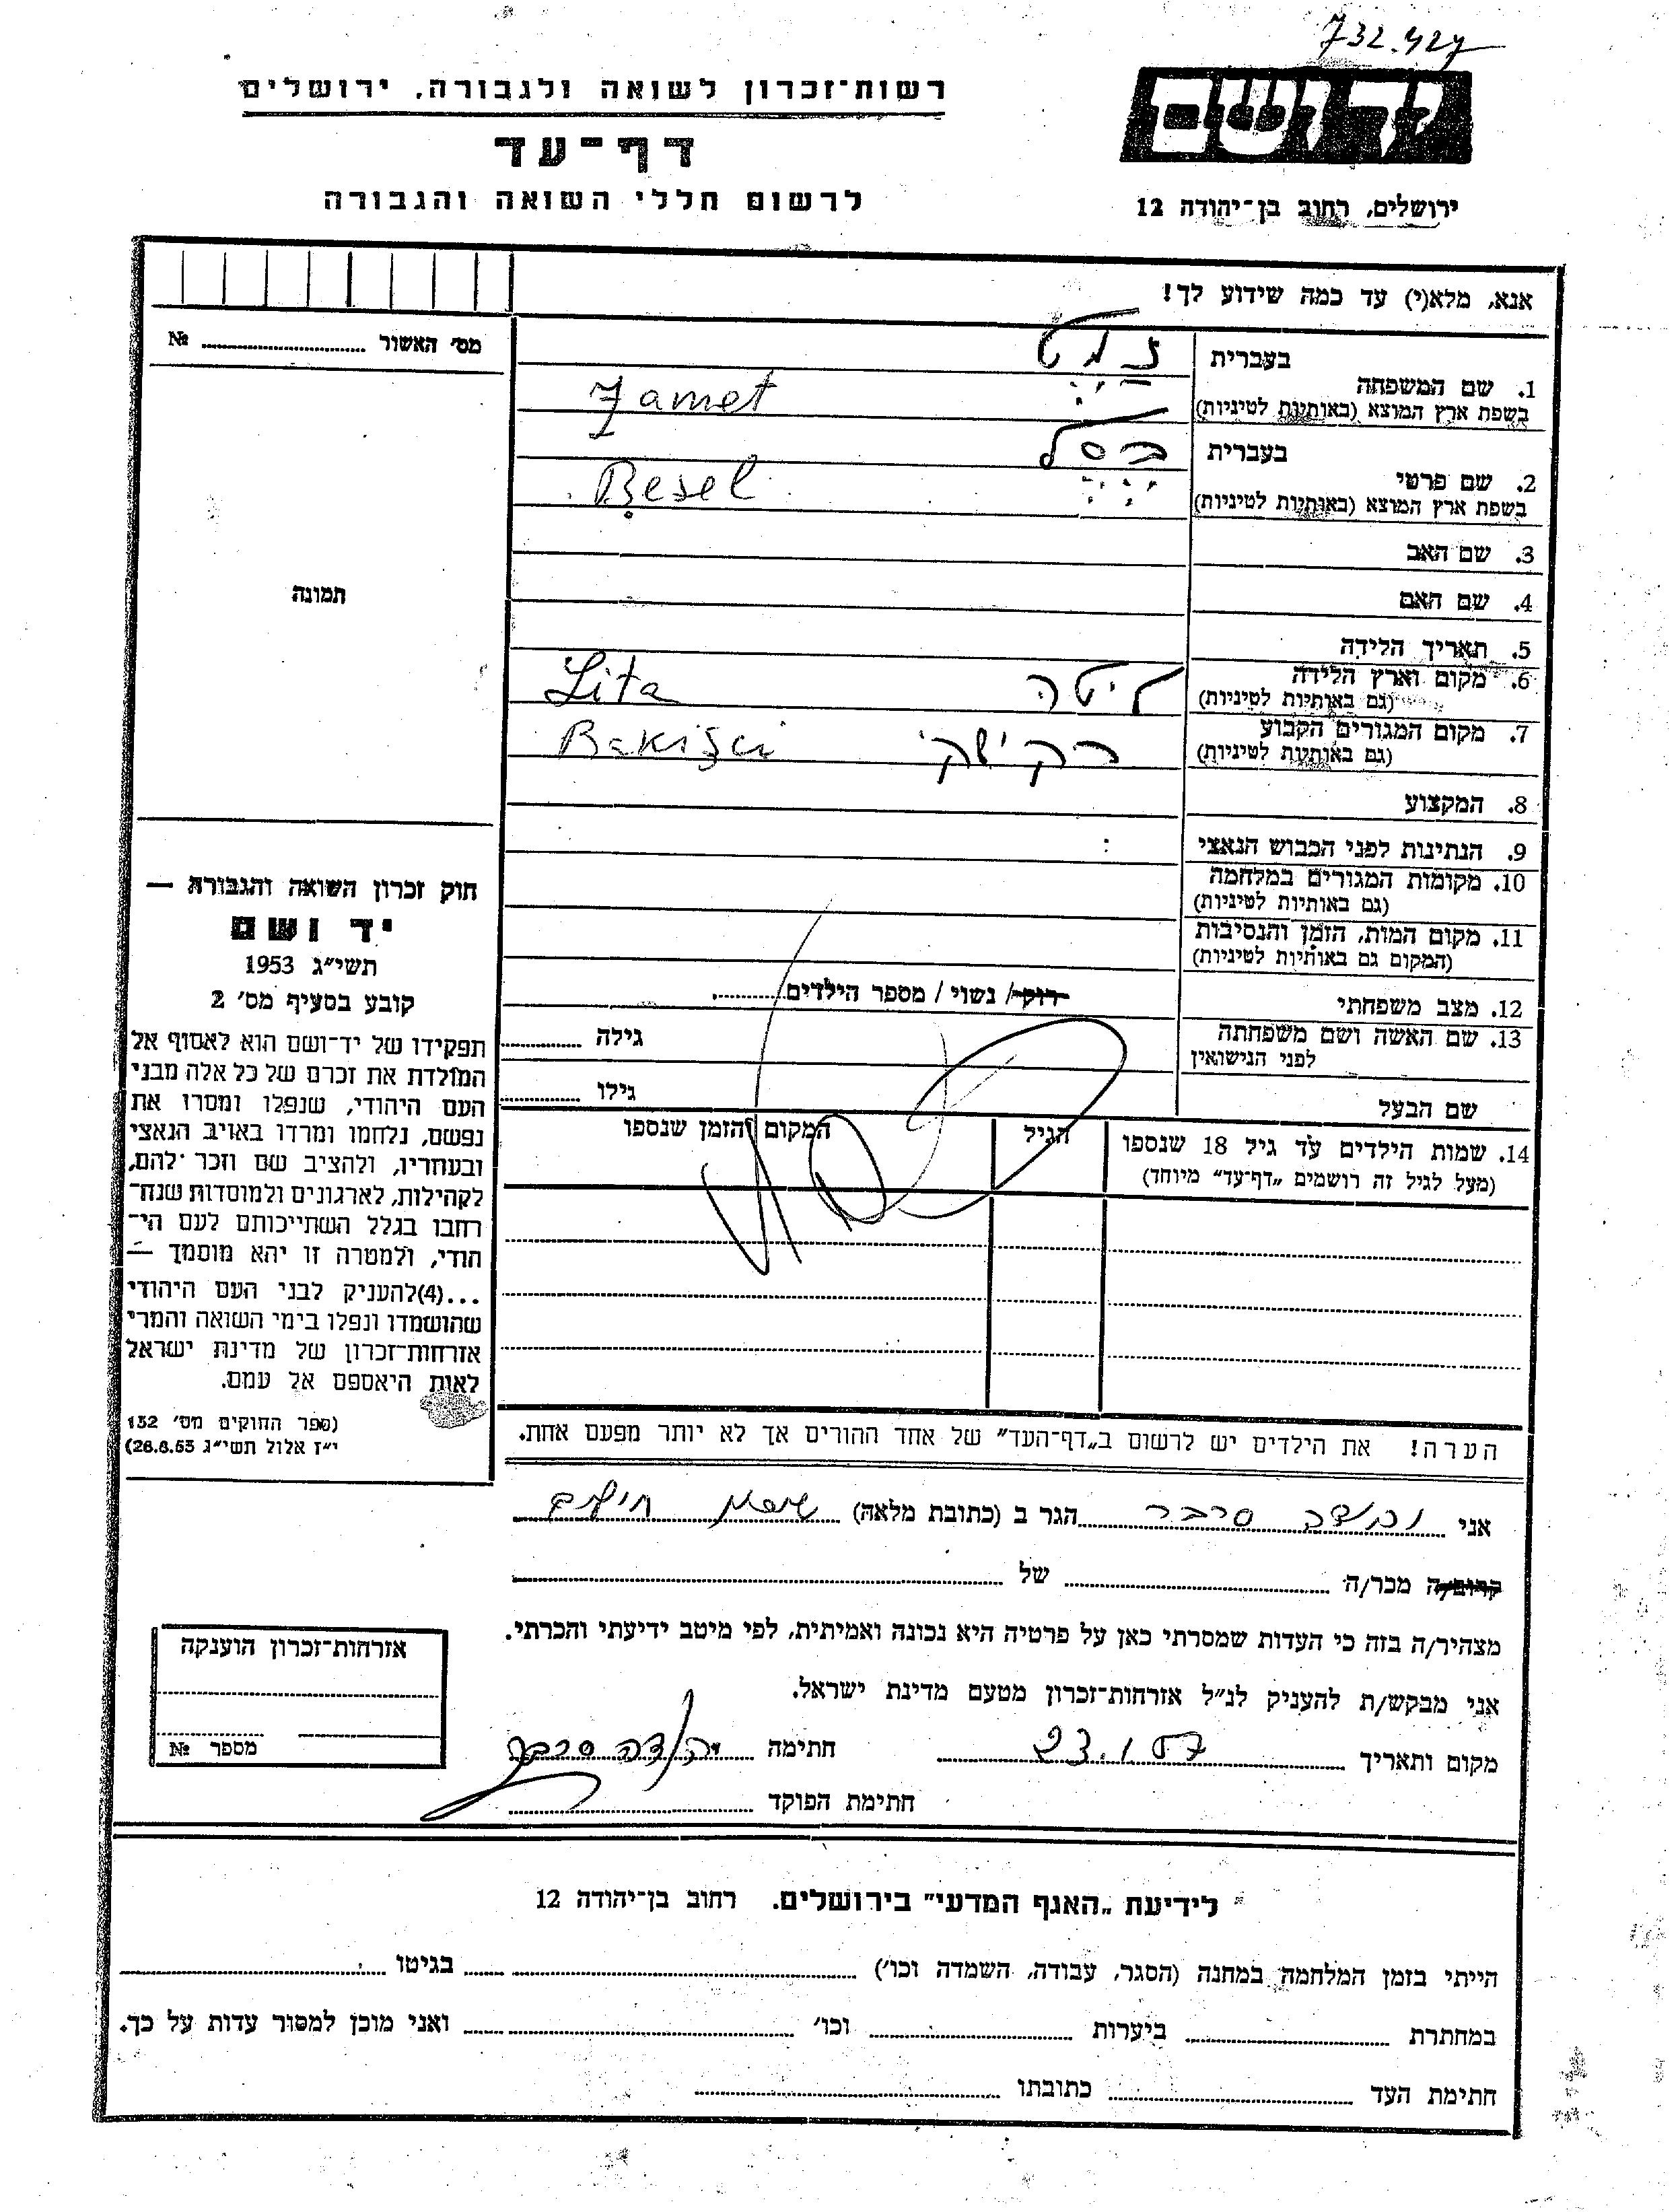 732.427
יד ושם
רשות־זכרון לשואה ולגבורה, ירושלים
דף־עד
לרשום חללי השואה והגבורה
ירושלים, רחוב בן־יהודה 12
אנא, מלא(י) עד כמה שידוע לך!
מס׳ האשור № ........
1. שם המשפחה
בעברית זמט
בשפת ארץ המוצא (באותיות לטיניות) Zamet
2. שם פרטי
בעברית בסל
בשפת ארץ המוצא (באותיות לטיניות) Besel
3. שם האב
4. שם האם
5. תאריך הלידה
6. מקום וארץ הלידה
(גם באותיות לטיניות) ליטה Lita
7. מקום המגורים הקבוע
(גם באותיות לטיניות)
8. המקצוע
9. הנתינות לפני הכבוש הנאצי
10. מקומות המגורים במלחמה
(גם באותיות לטיניות)
11. מקום המות, הזמן והנסיבות
(המקום גם באותיות לטיניות)
12. מצב משפחתי רוק/ נשוי / מספר הילדים ........
13. שם האשה ושם משפחתה
לפני הנישואין גילה ........
שם הבעל גילו ........
14. שמות הילדים עד גיל 18 שנספו
(מעל לגיל זה רושמים „דף־עד״ מיוחד)
הגיל
המקום והזמן שנספו
הערה! את הילדים יש לרשום ב„דף־העד״ של אחד ההורים אך לא יותר מפעם אחת.
תמונה
חוק זכרון השואה והגבורה —
יד ושם
תשי״ג 1953
קובע בסעיף מס׳ 2
תפקידו של יד־ושם הוא לאסוף אל
המולדת את זכרם של כל אלה מבני
העם היהודי, שנפלו ומסרו את
נפשם, נלחמו ומרדו באויב הנאצי
ובעוזריו, ולהציב שם וזכר להם,
לקהילות, לארגונים ולמוסדות שנח־
רחבו בגלל השתייכותם לעם הי־
הודי, ולמטרה זו יהא מוסמך —
...(4)להעניק לבני העם היהודי
שהושמדו ונפלו בימי השואה והמרי
אזרחות־זכרון של מדינת ישראל
לאות היאספם אל עמם.
(ספר החוקים מס׳ 132
י״ז אלול תשי״ג 28.8.53)
אני ........ הגר ב (כתובת מלאה) ........
קרוב/ה מכר/ה ........ של ........
מצהיר/ה בזה כי העדות שמסרתי כאן על פרטיה היא נכונה ואמיתית, לפי מיטב ידיעתי והכרתי.
אני מבקש/ת להעניק לנ״ל אזרחות־זכרון מטעם מדינת ישראל.
מקום ותאריך 23.1.57 חתימה ........
חתימת הפוקד ........
אזרחות־זכרון הוענקה
מספר №
לידיעת „האגף המדעי״ בירושלים. רחוב בן־יהודה 12
הייתי בזמן המלחמה במחנה (הסגר, עבודה, השמדה וכו׳) ........ בגיטו ........
במחתרת ........ ביערות ........ וכו׳ ........ ואני מוכן למסור עדות על כך.
חתימת העד ........ כתובתו ........